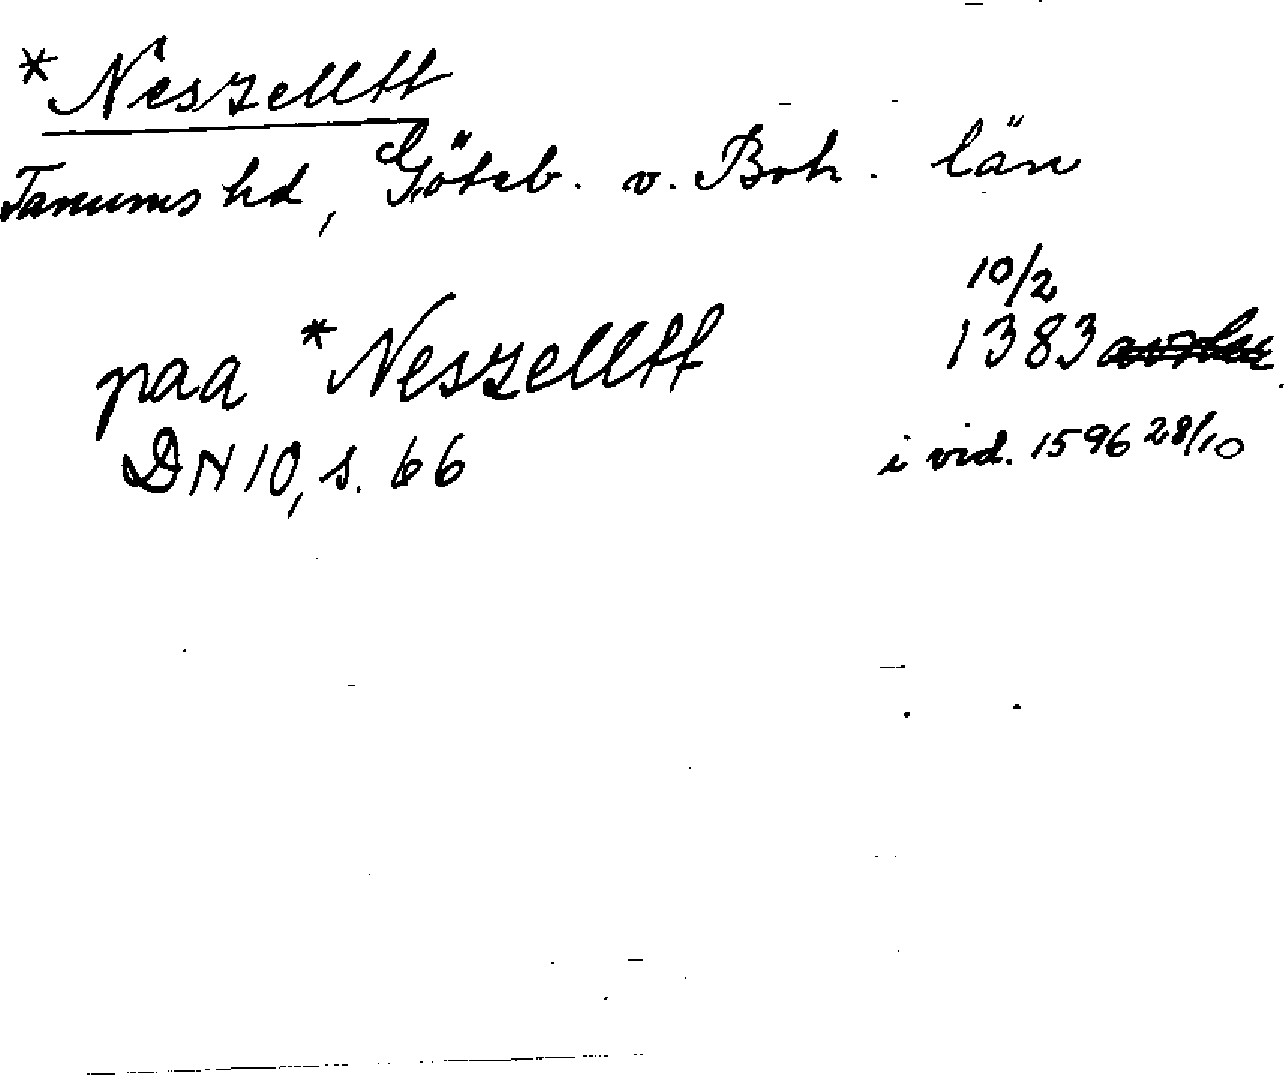 *Neszelltt
Tanums hd, Göteb. o. Boh. län
10/2
paa *Neszelltt 1383
DN 10, s. 66 i vid. 1596 28/10